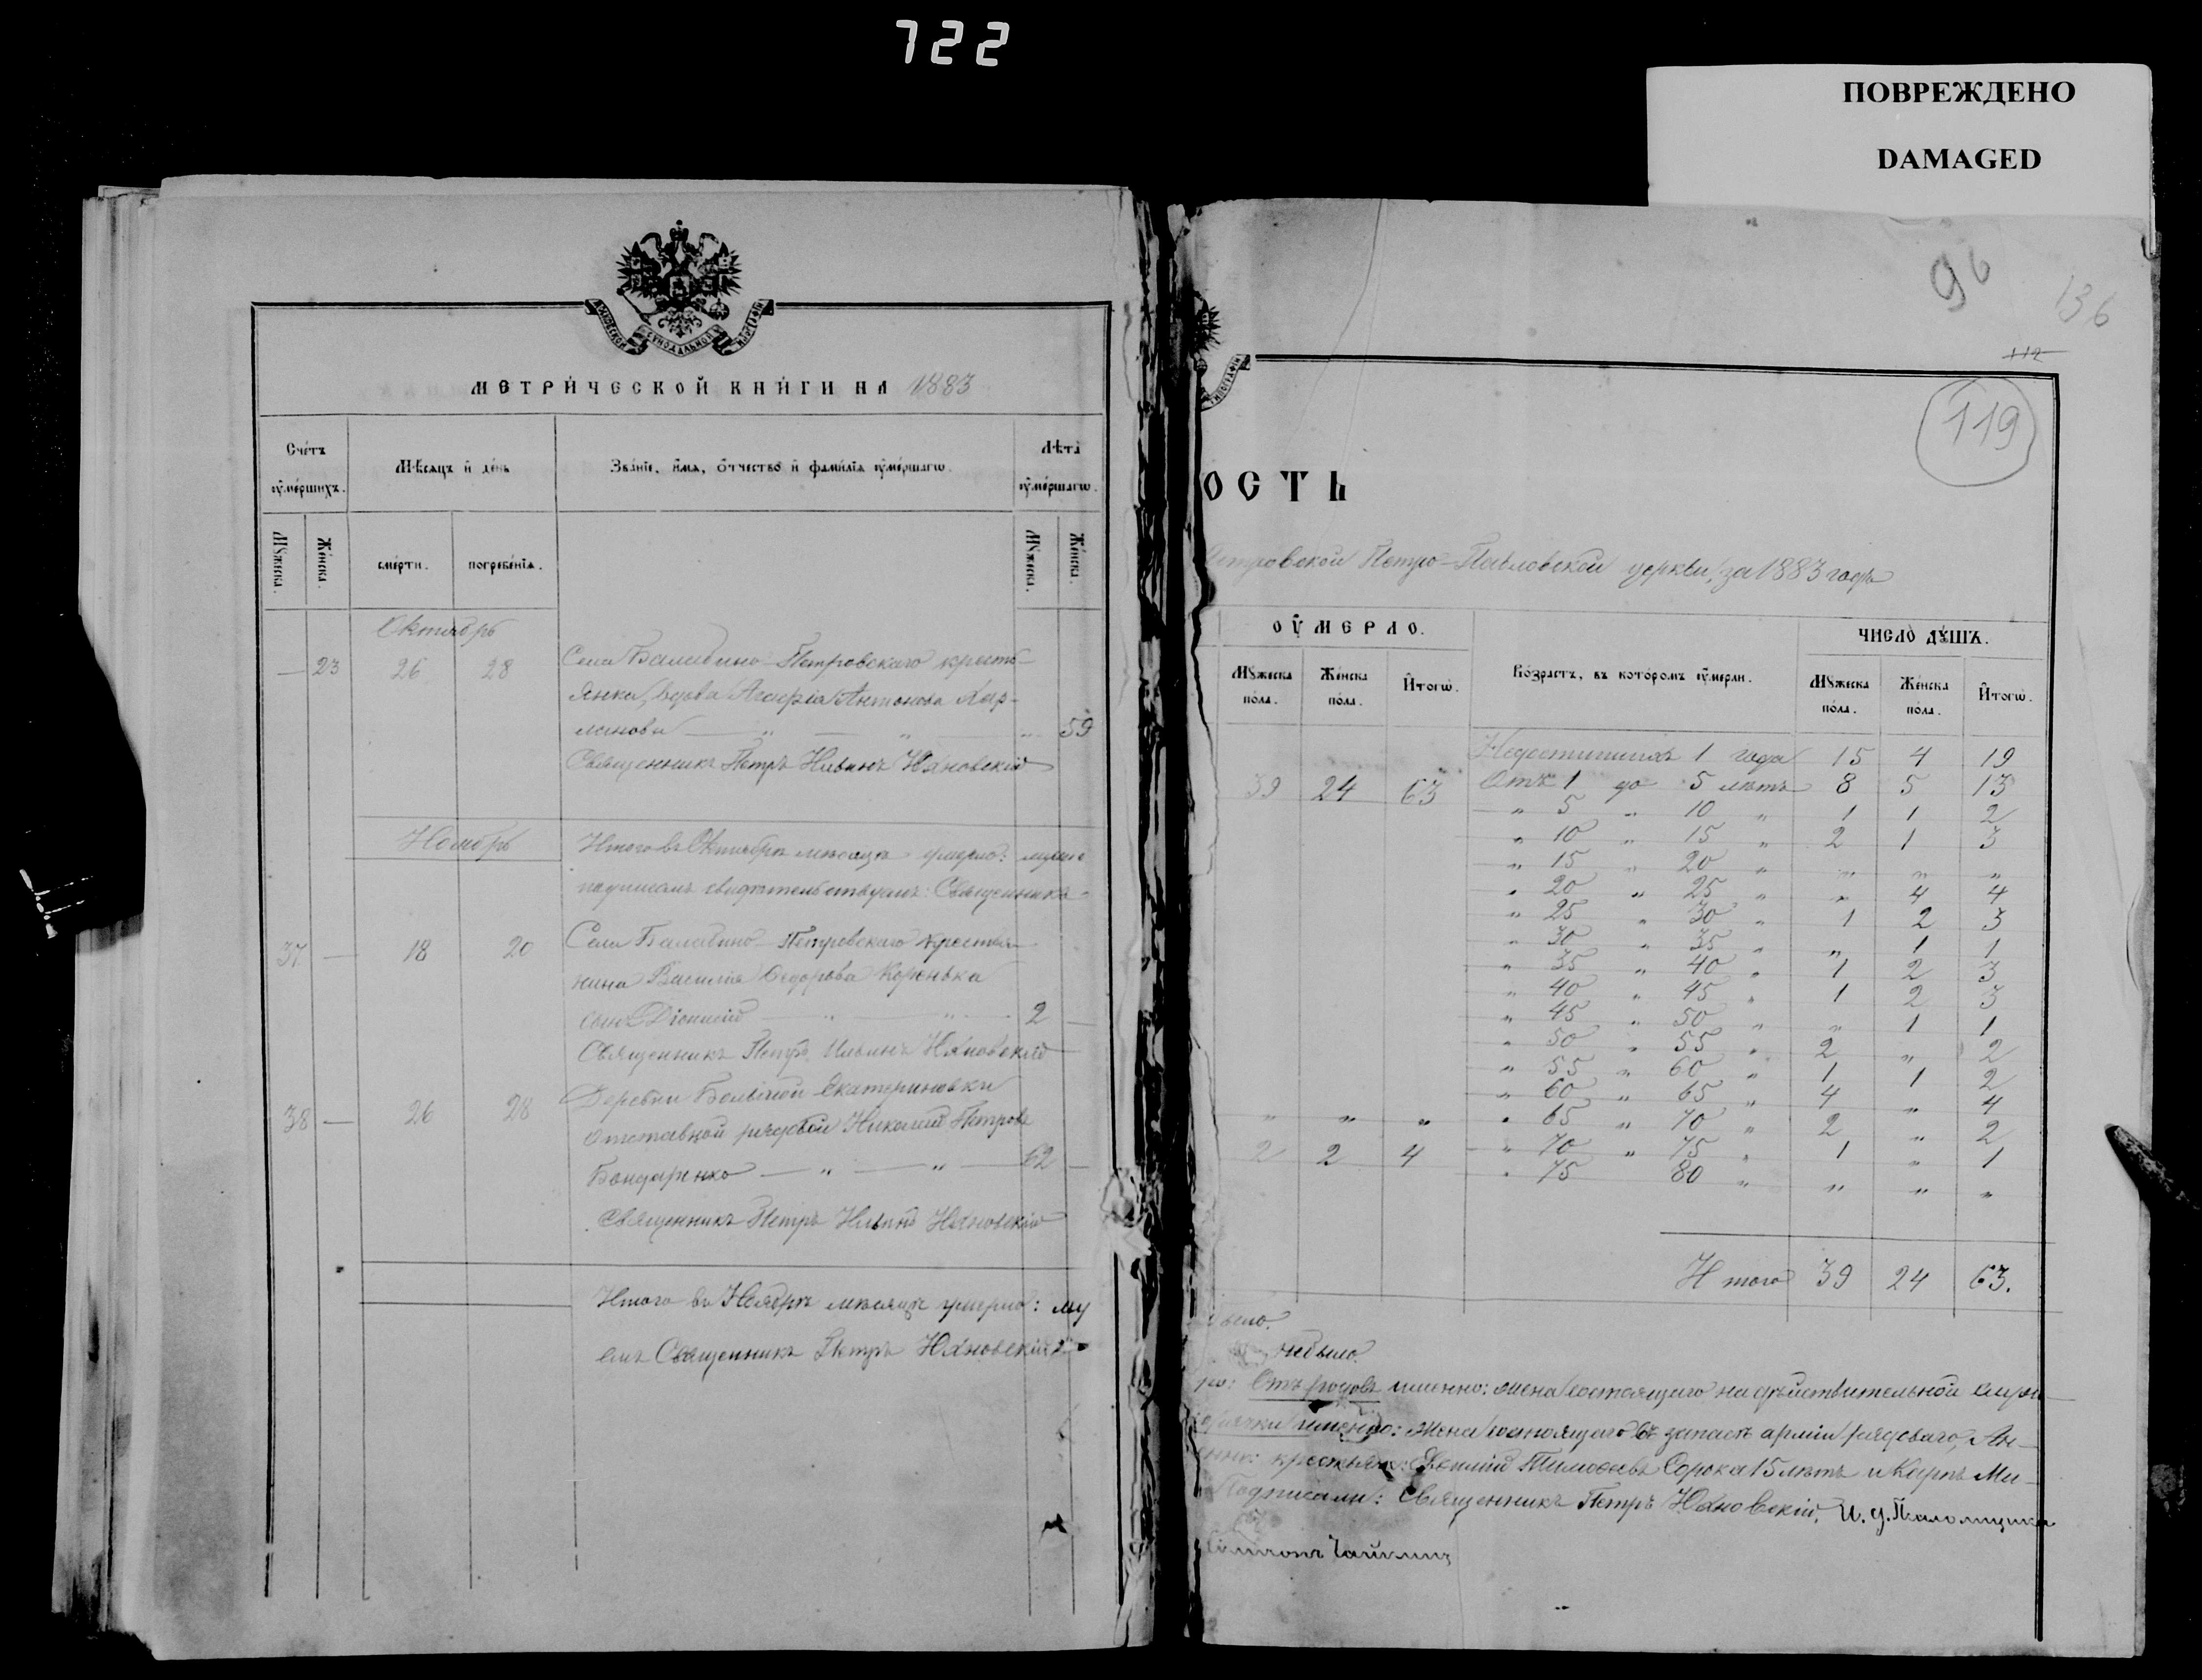 722
ПОВРЕЖДЕНО
DAMAGED
96
136
112
119
СУНОДАЛЬНОЙ
МЕТРИЧЕСКОЙ КНИГИ НА 1883
Счетъ оумершихъ.
Мѣсяцъ и день
Званіе, имя, отчество и фамилія оумершагω.
Лѣта оумершагω.
Мужеска.
Женска.
смерти.
погребенія.
Мужеска.
Женска.
Октябрь
— 23 26 28 Села Балабино-Петровскаго кресть-
янка, вдова Агафія Антонова Кар-
манова — „ — „ — „ 59
Священникъ Петръ Ильинъ Юхновскій
Ноябрь
Итого въ Октябрѣ мѣсяцѣ умерло: муже
подписомъ свидѣтельствуемъ: Священникъ
37 — 18 20 Села Балабино-Петровскаго крестья-
нина Василія Ѳедорова Коренька
сынъ Діонисій — „ „ — 2 —
Священникъ Петръ Ильинъ Юхновскій
38 — 26 28 Деревни Большой Екатериновки
отставной рядовой Николай Петровъ
Бондаренко — „ — „ — 62 —
Священникъ Петръ Ильинъ Юхновскій
Итого въ Ноябрѣ мѣсяцѣ умерло: му
емъ Священникъ Петръ Юхновскій
ОСТЬ
етровской Петро-Павловской церкви, за 1883 годъ
ОУМЕРЛО.
Мужеска пола.
Женска пола.
Итогω.
Возрастъ, въ которомъ оумерли.
ЧИСЛО ДУШЪ.
Мужеска пола.
Женска пола.
Итогω.
Недостигшихъ 1 года 15 4 19
39 24 63 Отъ 1 до 5 лѣтъ 8 5 13
„ 5 „ 10 „ 1 1 2
„ 10 „ 15 „ 2 1 3
„ 15 „ 20 „ „ „ „
„ 20 „ 25 „ „ 4 4
„ 25 „ 30 „ 1 2 3
„ 30 „ 35 „ „ 1 1
„ 35 „ 40 „ 1 2 3
„ 40 „ 45 „ 1 2 3
„ 45 „ 50 „ „ 1 1
„ 50 „ 55 „ 2 „ 2
„ 55 „ 60 „ 1 1 2
„ 60 „ 65 „ 4 „ 4
„ „ „ „ 65 „ 70 „ 2 „ 2
2 2 4 „ 70 „ 75 „ 1 „ 1
„ 75 80 „ „ „ „
Итого 39 24 63.
было.
небыло.
Отъ родовъ именно: жена состоящаго на дѣйствительной
именно: жена состоящаго въ запасѣ арміи рядоваго, Ан-
Тимоѳеевъ Сорока 15 лѣтъ и Карпъ Ми-
Подписали: Священникъ Петръ Юхновскій, И. д. Псаломщика